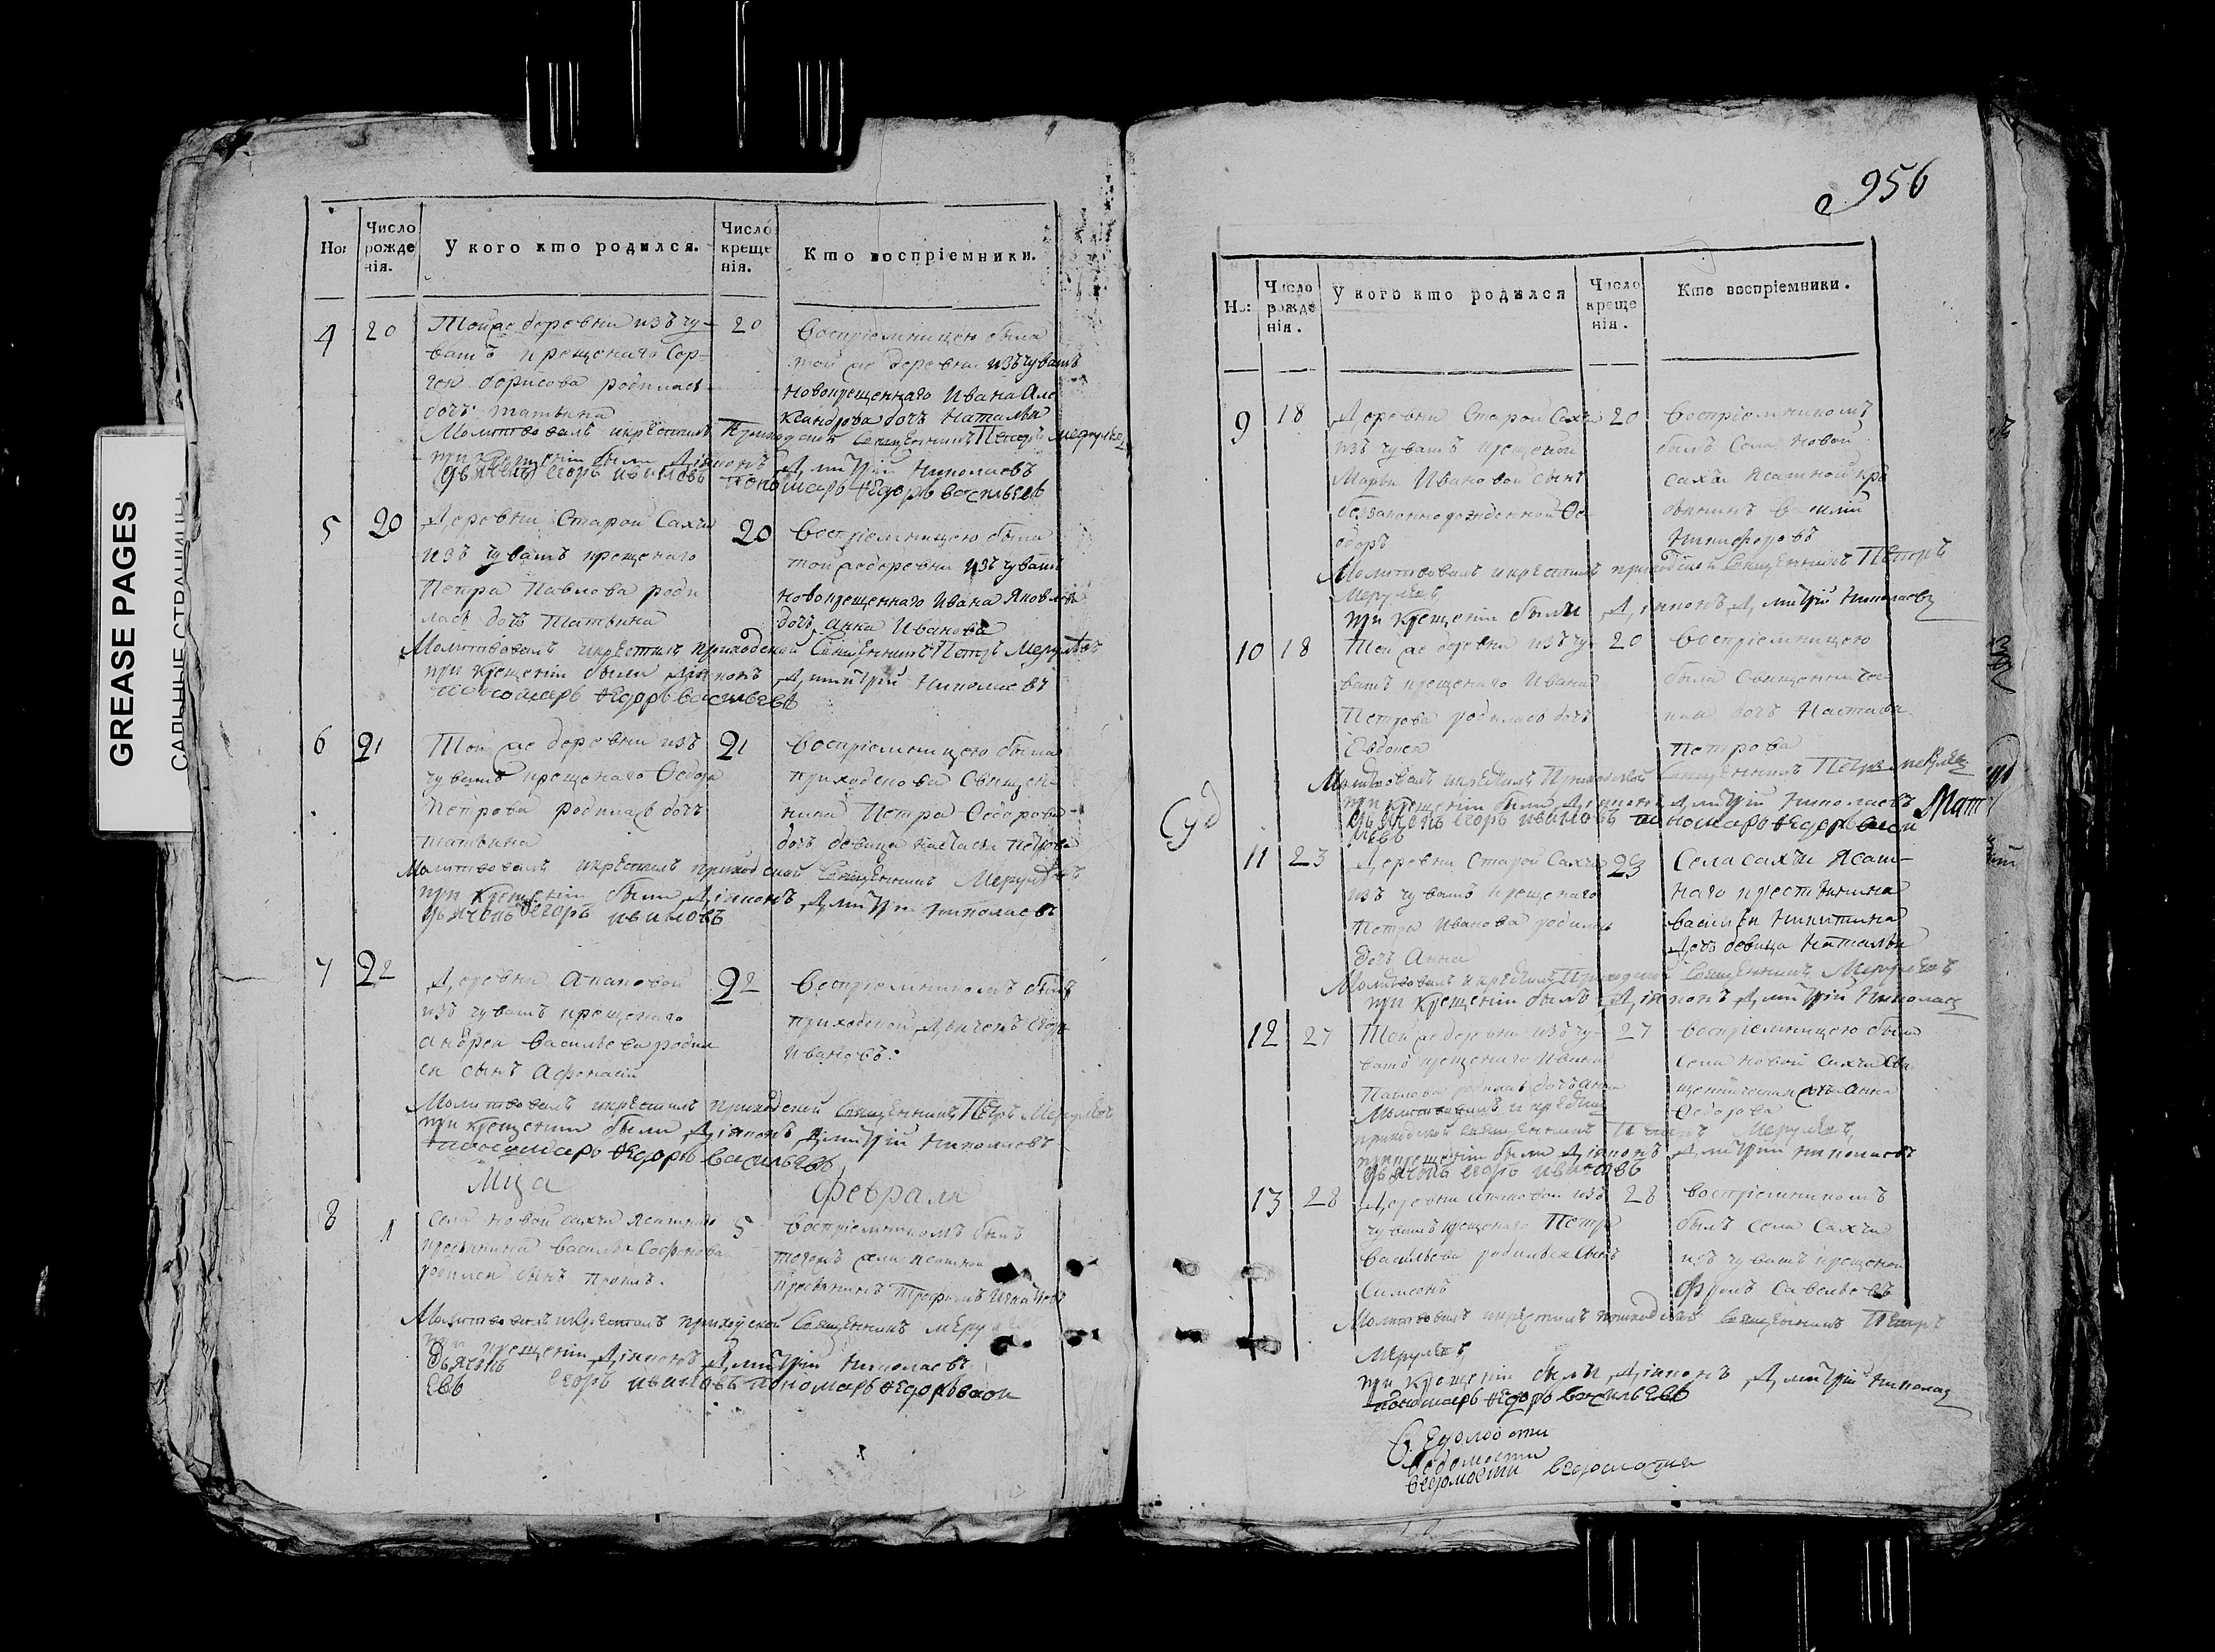 GREASE PAGES
956
Но: Число рожденія. У кого кто родился. Число крещенія. Кто воспріемники.
4 20 Той же деревни изъ чу- 20
вашъ крещенаго Сер-
гея Борисова родилась
дочь татьяна
Воспріемницею была
той же деревни изъ чувашъ
новокрещеннаго Ивана Але
ксандрова дочь Наталья
Молитвовалъ и крестилъ приходской священникъ Петръ
при крещеніи были Діяконъ Дмитрій Николаевъ
дьячекъ егоръ ивановъ пономарь ѳедоръ васильевъ
5 20 Деревни Старой Сахчи 20
изъ чувашъ крещенаго
Петра Павлова роди
лась дочь Татьяна
Воспріемницею была
той же деревни изъ чувашъ
новокрещеннаго Ивана Яковлева
дочь анна Иванова
Молитвовалъ и крестилъ приходской священникъ Петръ
при крещеніи были Діяконъ Дмитрій Николаевъ
пономарь ѳедоръ васильевъ
6 21 Той же деревни изъ 21
чувашъ крещенаго Ѳедора
Петрова родилась дочь
татьяна
Воспріемницею была
приходскова священ-
ника Петра Ѳедорова
дочь девица настасья петрова
Молитвовалъ и крестилъ приходской священникъ
при крещеніи были Діяконъ Дмитрій николаевъ
дьячекъ егоръ ивановъ
7 22 Деревни 22
изъ чувашъ крещенаго
андрея васильева родил
ся сынъ Афонасій
Воспріемникомъ былъ
приходской Дьячекъ Егоръ
Ивановъ.
Молитвовалъ и крестилъ приходской священникъ Петръ
при крещеніи были Діяконъ Дмитрій Николаевъ
пономарь ѳедоръ васильевъ
Мца Февраля
8 1 Села новой сахчи ясашнаго 5
родился сынъ
Воспріемникомъ былъ
тогожъ села
Молитвовалъ и крестилъ приходской священникъ
при крещеніи Діяконъ Дмитрій Николаевъ
дьячекъ егоръ ивановъ пономарь ѳедоръ васи
евъ
Но: Число рожденія. У кого кто родился Число крещенія. Кто воспріемники.
9 18 Деревни Старой Сахчи 20
изъ чувашъ крещеной
Марьи Ивановой сынъ
беззаконнорожденной Ѳе
одоръ
Воспріемникомъ
былъ Села новой
сахчи ясашной кре
стьянинъ василій
Никифоровъ
Молитвовалъ и крестилъ приходской священникъ Петръ
при крещеніи были Діяконъ Дмитрій Николаевъ
10 18 Той же деревни изъ чу- 20
вашъ крещенаго Ивана
Петрова родилась дочь
Евдокея
Воспріемницею
была священниче-
ская дочь Настасья
петрова
Молитвовалъ и крестилъ Приходской священникъ Петръ
при крещеніи были Діяконъ Дмитрій николаевъ
дьячекъ егоръ ивановъ пономарь ѳедоръ васи
льевъ
Суд
Мат
11 23 Деревни Старой Сахчи 23
изъ чувашъ крещенаго
Петра Иванова родилась
дочь Анна
Села сахчи Ясаш-
наго крестьянина
василья никитина
Дочь девица Наталья
Молитвовалъ и крестилъ Приходской священникъ
при крещеніи былъ Діяконъ Дмитрій Николаевъ
12 27 Той же деревни изъ чу- 27
вашъ крещенаго Ивана
Павлова родилась дочь анна
Воспріемницею была
села новой сахчи свя
щенническая дочь анна
Ѳедорова
Молитвовалъ и крестилъ
приходской священникъ Петръ
при крещеніи были Діяконъ Дмитрій николаевъ
дьячекъ егоръ ивановъ
13 28 Деревни изъ 28
чувашъ крещенаго Петра
Васильева родился сынъ
Симеонъ
Воспріемникомъ
былъ села Сахчи
изъ чувашъ крещеной
Фролъ Савельевъ
Молитвовалъ и крестилъ приходской священникъ Петръ
при крещеніи были Діяконъ Дмитрій николаевъ
пономарь ѳедоръ васильевъ
ведомости
ведомости
ведомости